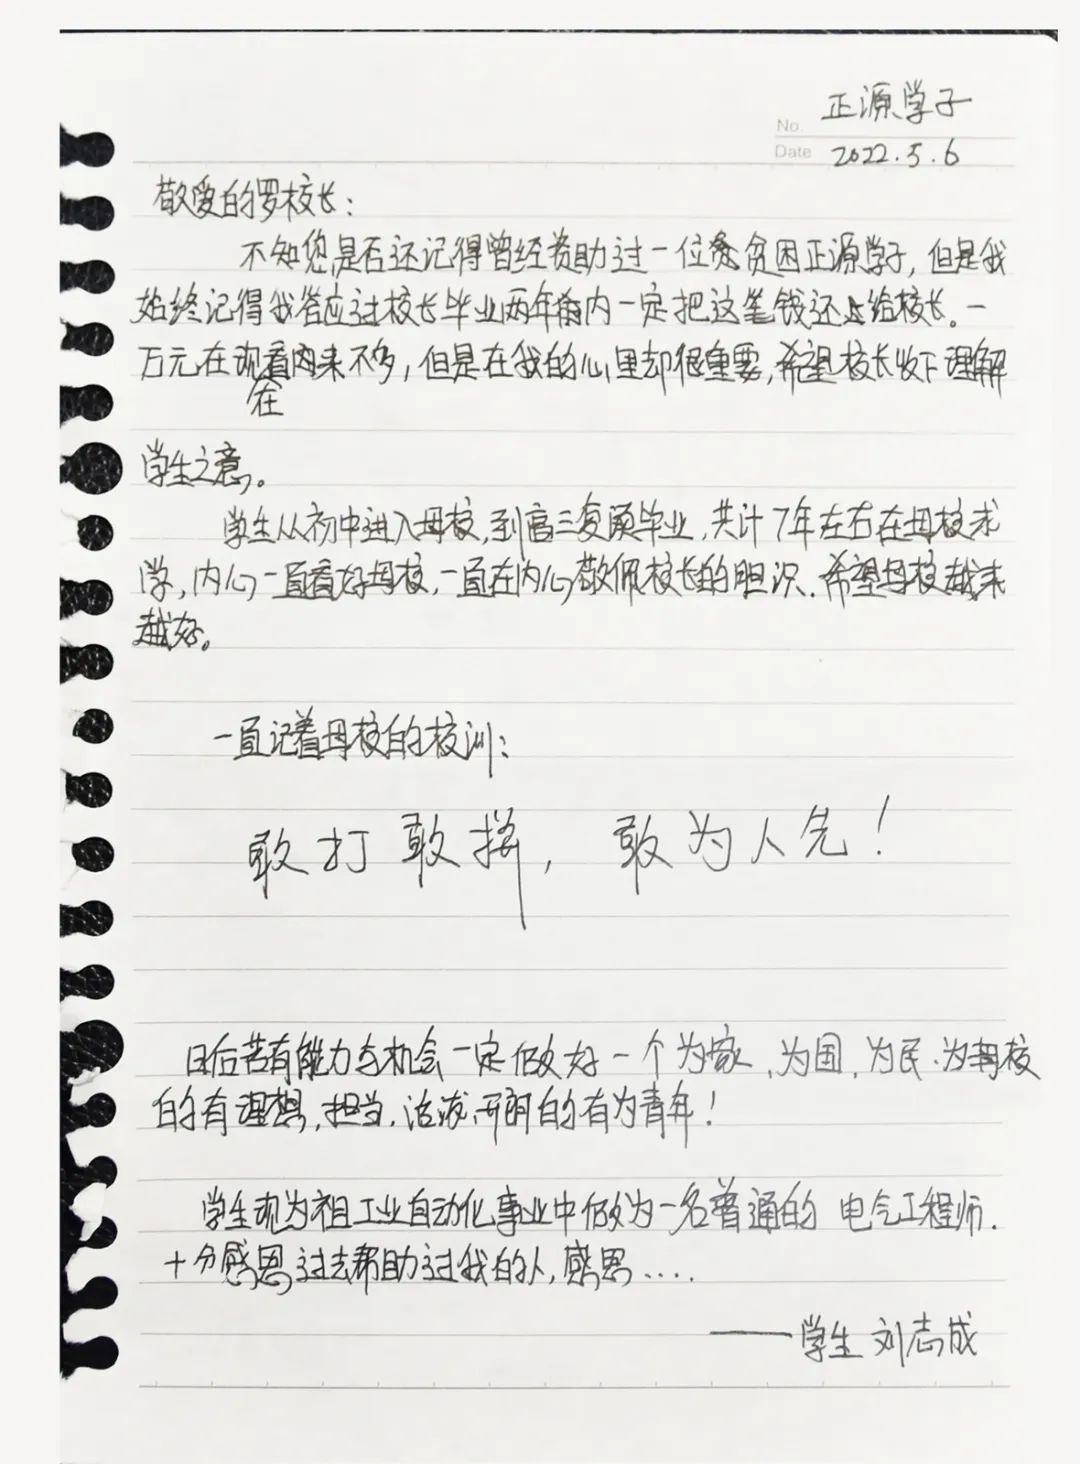 正源学子
No.
Date 2022.5.6
敬爱的罗校长：
不知您是否还记得曾经资助过一位贫困正源学子，但是我
始终记得我答应过校长毕业两年内一定把这笔钱还上给校长。一
万元在现看内来不多，但是在我的心里却很重要，希望校长收下理解
在
学生之意。
学生从初中进入母校，到高三复读毕业，共计7年左右在母校求
学，内心一直看好母校，一直在内心敬佩校长的胆识.希望母校越来
越好。
一直记着母校的校训：
敢打敢拼，敢为人先！
日后若有能力与机会一定做好一个为家、为国、为民、为母校
的有理想，担当，活泼，开朗的有为青年！
学生现为祖工业自动化事业中做为一名普通的 电气工程师.
十分感恩过去帮助过我的人，感恩....
——学生 刘志成